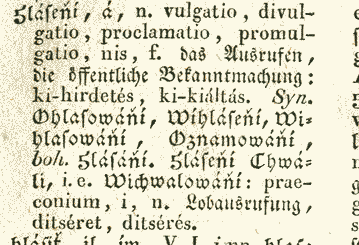 Hláseňí, á, n. vulgatio, divul-
gatio, proclamatio, promul-
gatio, nis, f. das Ausrufen,
die öffentliche Bekanntmachung:
ki-hirdetés, ki-kiáltás. Syn.
Ohlasowáňí, Wihláseňí, Wi-
hlasowáňí, Oznamowáňí,
boh. Hlásáňí. Hláseňí Chwá-
li, i. e. Wichwalowáňí: prae-
conium, i, n. Lobausrufung,
ditséret, ditsérés.